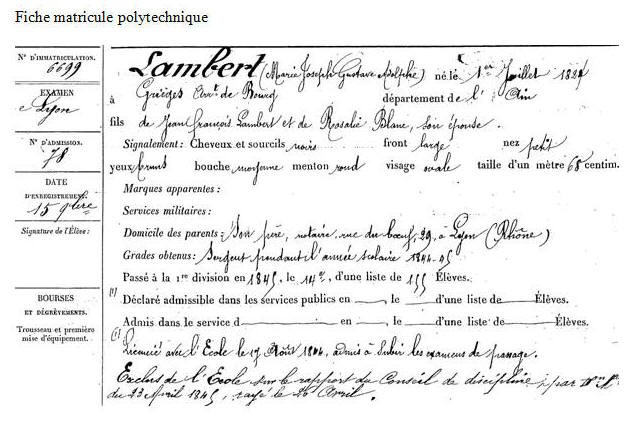 Fiche matricule polytechnique
N° D'IMMATRICULATION.
6699
EXAMEN
Lyon
N° D'ADMISSION.
78
DATE
D'ENREGISTREMENT.
15 9bre
Signature de l'Élève:
BOURSES
ET DÉGRÈVEMENTS.
Trousseau et première
mise d'équipement.
Lambert (Marie Joseph Gustave Adolphe) né le 1er Juillet
à Grièges Arrt de Bourg département de l' Ain
fils de Jean François Lambert et de Rosalie Blanc, son épouse.
Signalement: Cheveux et sourcils noirs front large nez petit
yeux bruns bouche moyenne menton rond visage ovale taille d'un mètre 68 centim.
Marques apparentes:
Services militaires:
Domicile des parents: Son père, notaire, rue du bœuf, 29, à Lyon (Rhône)
Grades obtenus: Sergent pendant l'année scolaire 1844-45
Passé à la 1re division en 1845, le 14e, d'une liste de 155 Élèves.
(1) Déclaré admissible dans les services publics en , le d'une liste de Élèves.
Admis dans le service d en , le d'une liste de Élèves.
(1) Licencié avec l'Ecole le 17 Août 1844, admis à subir les examens de passage.
Exclus de l'Ecole sur le rapport du Conseil de discipline, par
du 23 Avril 1845, rayé le 26 Avril.